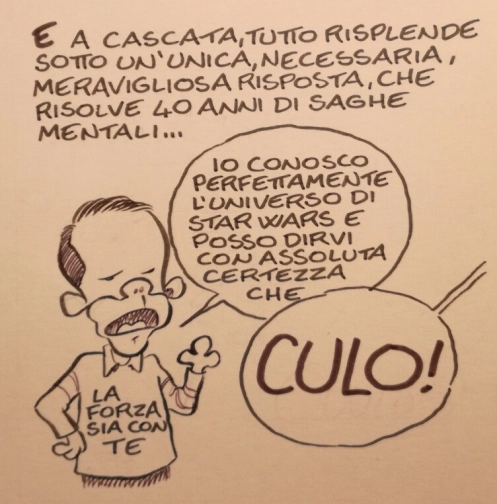 E A CASCATA, TUTTO RISPLENDE
SOTTO UN'UNICA, NECESSARIA,
MERAVIGLIOSA RISPOSTA, CHE
RISOLVE 40 ANNI DI SAGHE
MENTALI...
IO CONOSCO
PERFETTAMENTE
L'UNIVERSO DI
STAR WARS E
POSSO DIRVI
CON ASSOLUTA
CERTEZZA
CHE
CULO!
LA
FORZA
SIA CON
TE